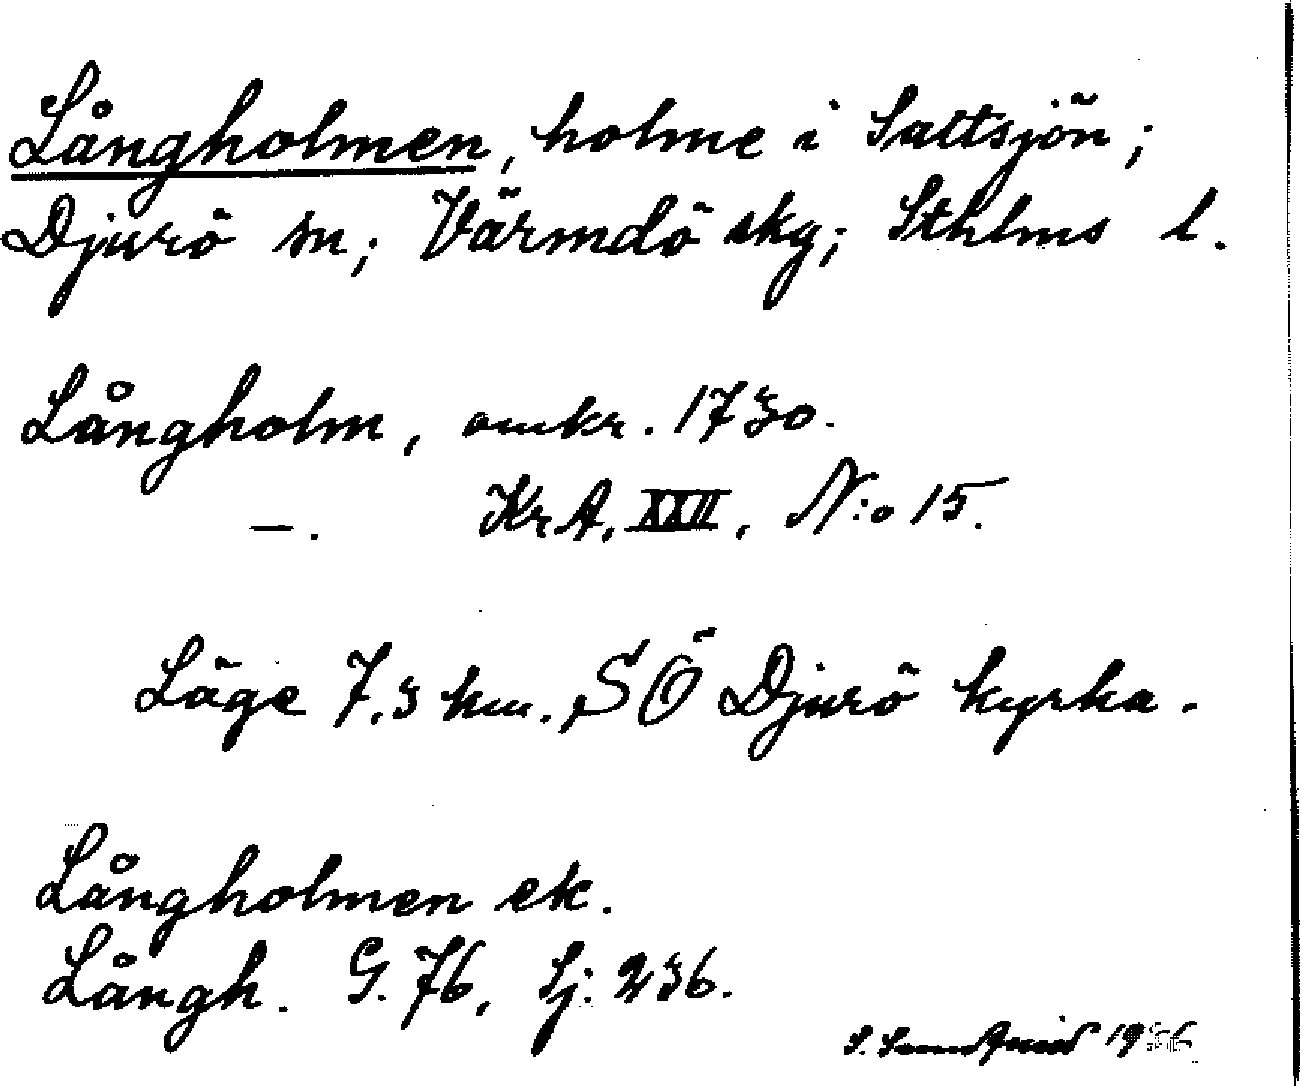 Långholmen, holme i Saltsjön;
Djurö sn; Värmdö skg; Sthlms l.
Långholm, omkr. 1730.
—. KrA, XXII, N:o 15.
Läge 7,3 km. SÖ Djurö kyrka.
Långholmen ek.
Långh. G. 76, Sj: 236.
S. 19